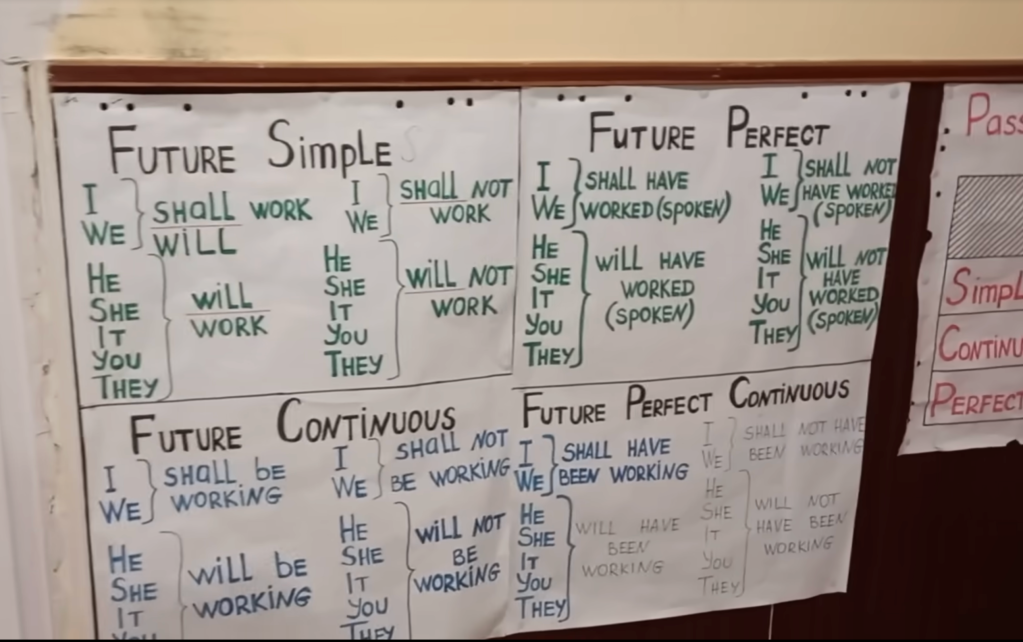 FUTURE SimpLE
I
WE
SHALL WORK
WILL
HE
SHE
IT
YOU
THEY
WILL
WORK
I
WE
SHALL NOT
WORK
HE
SHE
IT
YOU
THEY
WILL NOT
WORK
FUTURE PERFECT
I
WE
SHALL HAVE
WORKED (SPOKEN)
HE
SHE
IT
YOU
THEY
WILL HAVE
WORKED
(SPOKEN)
I
WE
SHALL NOT
HAVE WORKED
(SPOKEN)
HE
SHE
IT
YOU
THEY
WILL NOT
HAVE
WORKED
(SPOKEN)
FUTURE CONTINUOUS
I
WE
SHALL BE
WORKING
HE
SHE
IT
YOU
WILL BE
WORKING
I
WE
SHALL NOT
BE WORKING
HE
SHE
IT
YOU
THEY
WILL NOT
BE
WORKING
FUTURE PERFECT CONTINUOUS
I
WE
SHALL HAVE
BEEN WORKING
HE
SHE
IT
YOU
THEY
WILL HAVE
BEEN
WORKING
I
WE
SHALL NOT HAVE
BEEN WORKING
HE
SHE
IT
YOU
THEY
WILL NOT
HAVE BEEN
WORKING
Pass
SimpL
CONTINU
PERFECT